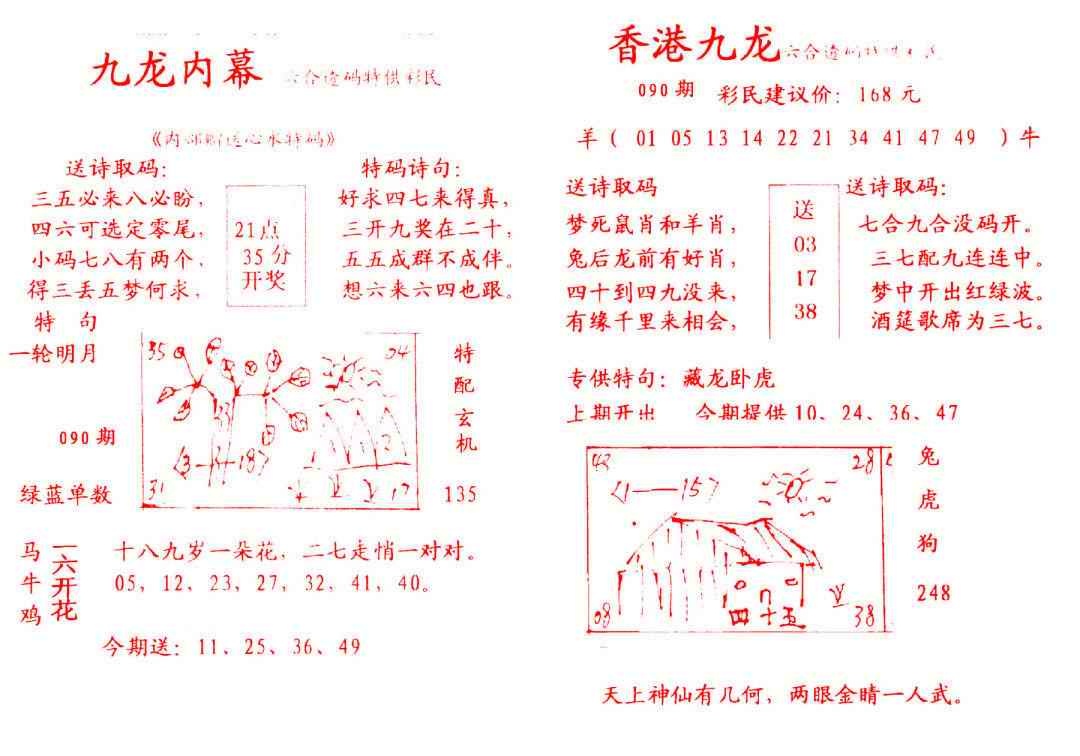 九龙内幕 六合透码特供彩民
《内部赠送心水特码》
送诗取码：
三五必来八必盼，
四六可选定零尾，
小码七八有两个，
得三丢五梦何求，
21点
35分
开奖
特码诗句：
好求四七来得真，
三开九奖在二十，
五五成群不成伴。
想六来六四也跟。
特 句
一轮明月
090期
绿蓝单数
35
04
31
17
特配玄机
135
马牛鸡
一六开花
十八九岁一朵花，二七走悄一对对。
05，12，23，27，32，41，40。
今期送：11、25、36、49
香港九龙 六合透码特供
090期 彩民建议价：168元
羊（ 01 05 13 14 22 21 34 41 47 49 ）牛
送诗取码
梦死鼠肖和羊肖，
兔后龙前有好肖，
四十到四九没来，
有缘千里来相会，
送
03
17
38
送诗取码：
七合九合没码开。
三七配九连连中。
梦中开出红绿波。
酒筵歌席为三七。
专供特句：藏龙卧虎
上期开出 今期提供10、24、36、47
42
28
08
38
四十五
兔
虎
狗
248
天上神仙有几何，两眼金睛一人武。